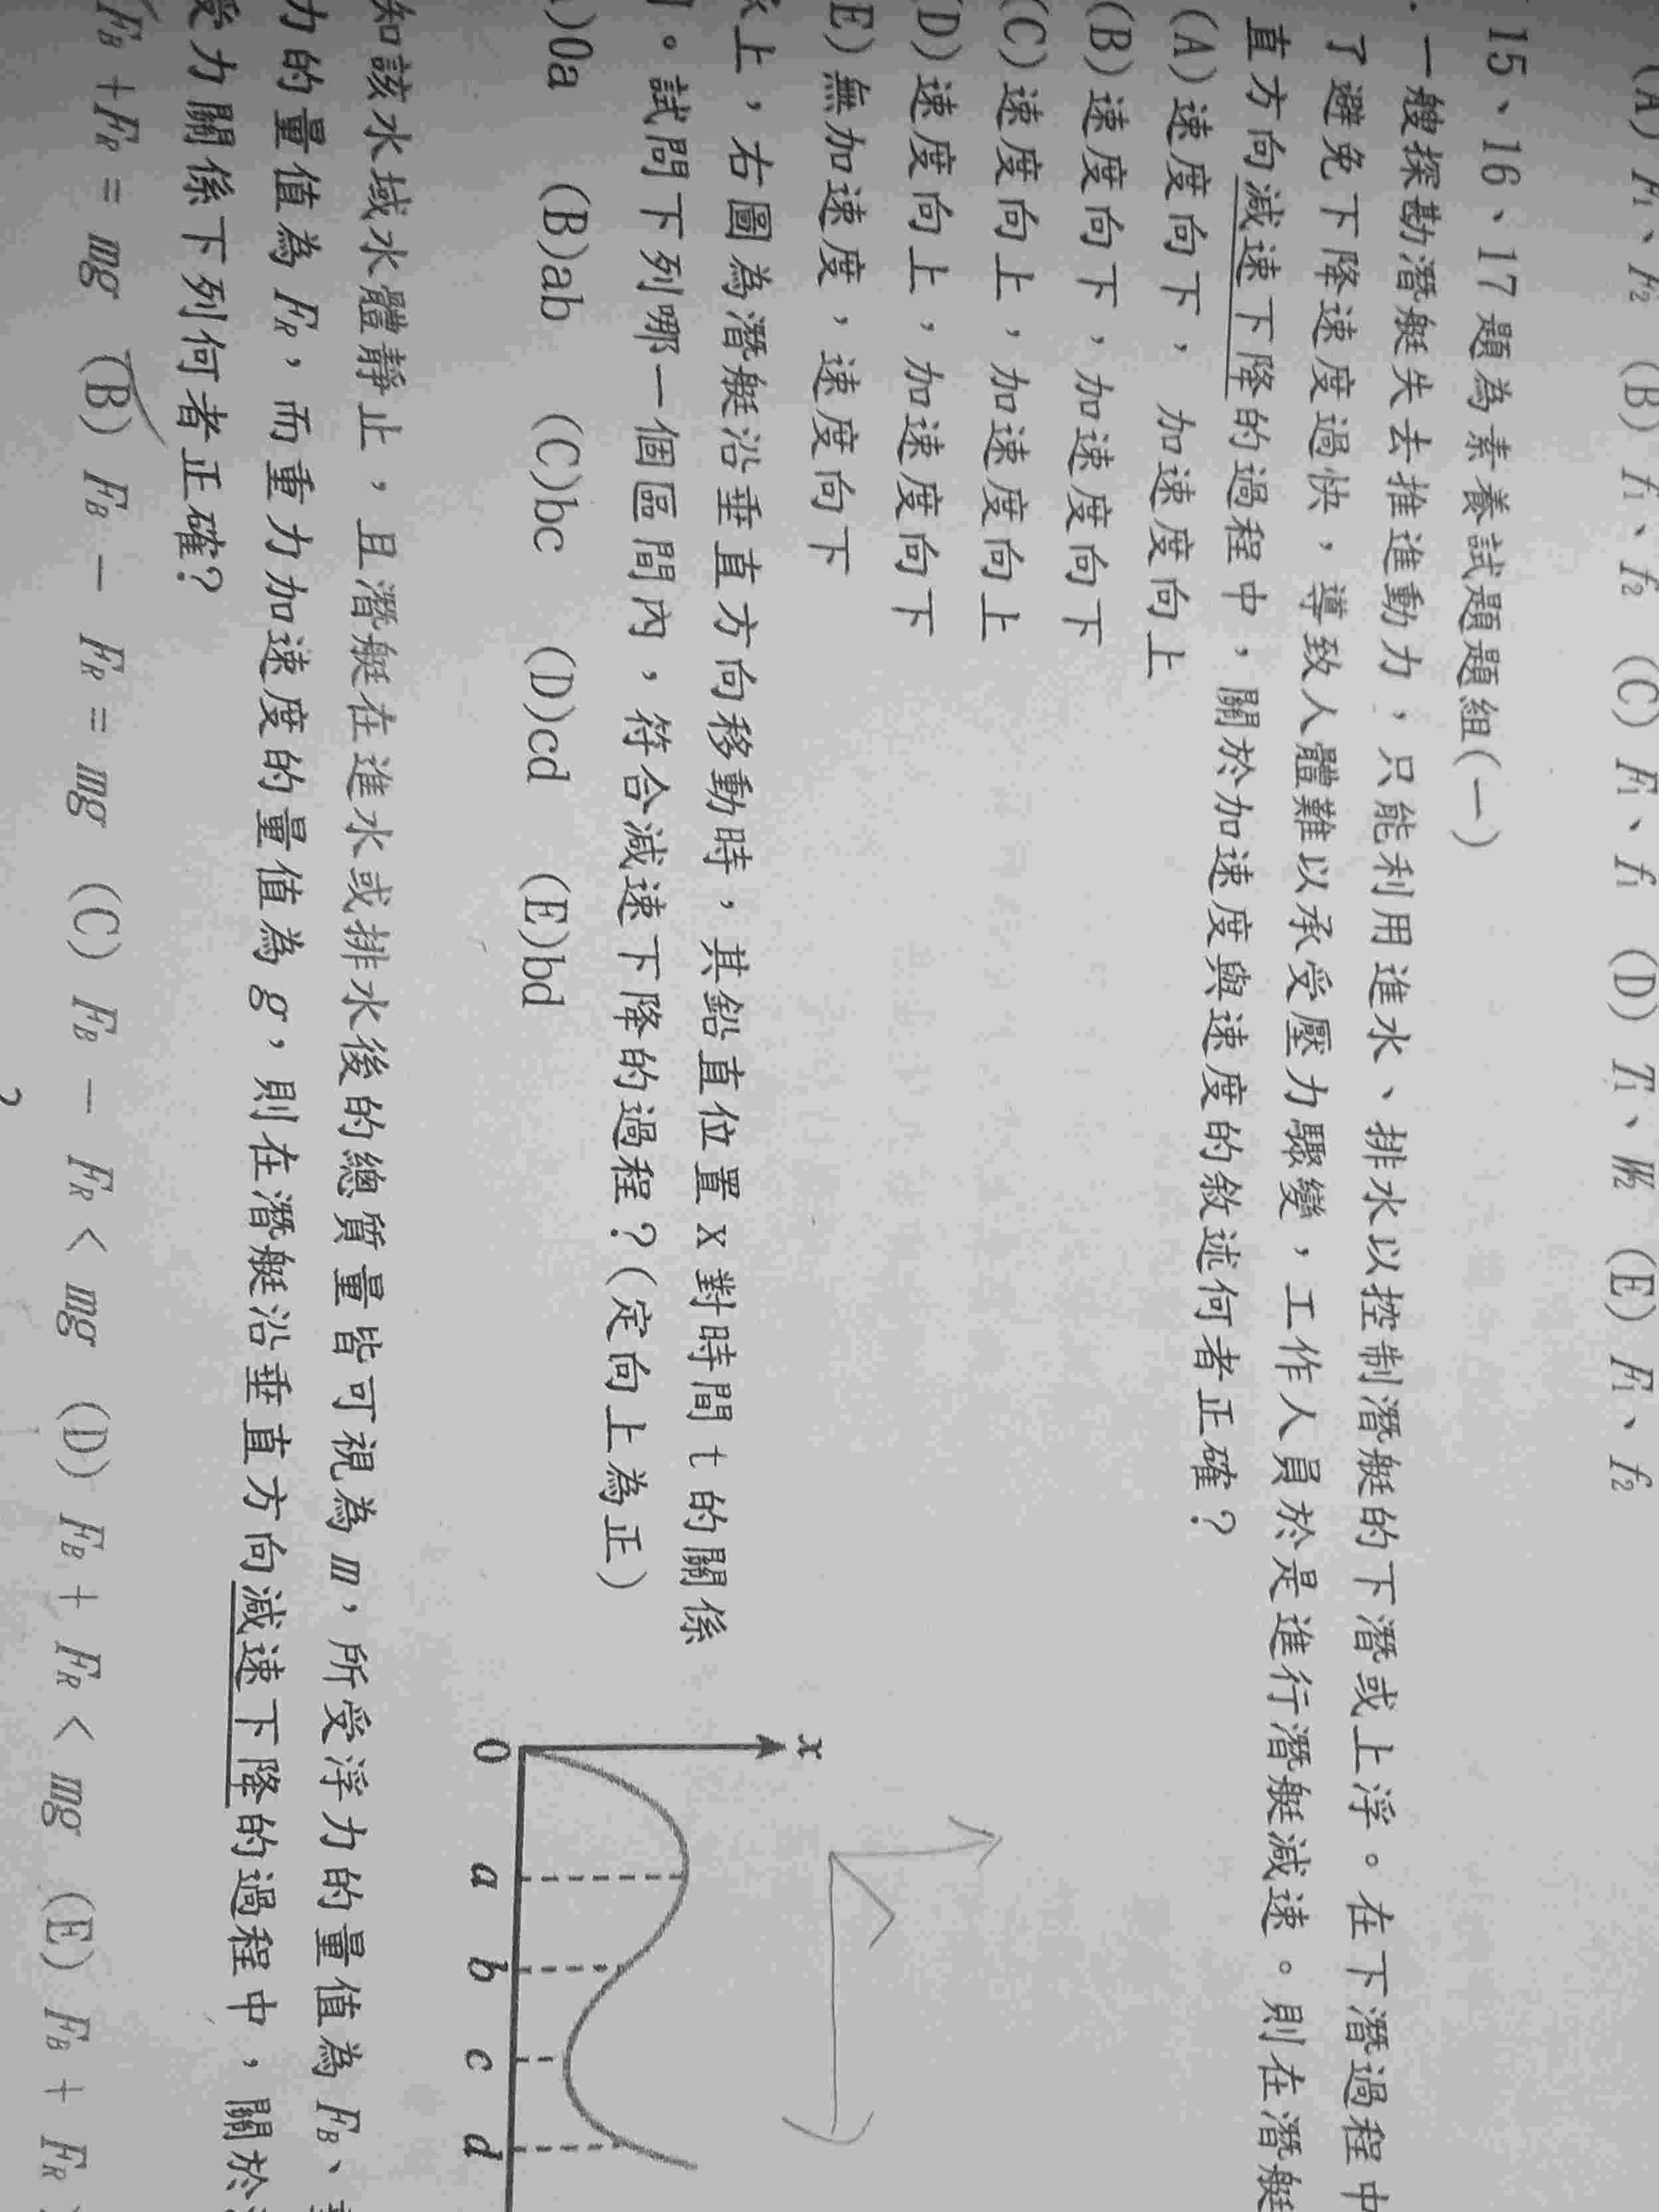 (A) F₁、F₂ (B) f₁、f₂ (C) F₁、f₁ (D) T₁、W₂ (E) F₁、f₂
15、16、17題為素養試題題組(一)
．一艘探勘潛艇失去推進動力，只能利用進水、排水以控制潛艇的下潛或上浮。在下潛過程中
了避免下降速度過快，導致人體難以承受壓力驟變，工作人員於是進行潛艇減速。則在潛艇
直方向減速下降的過程中，關於加速度與速度的敘述何者正確？
(A)速度向下， 加速度向上
(B)速度向下，加速度向下
(C)速度向上，加速度向上
(D)速度向上，加速度向下
E)無加速度，速度向下
上，右圖為潛艇沿垂直方向移動時，其鉛直位置 x 對時間 t 的關係
。試問下列哪一個區間內，符合減速下降的過程？(定向上為正)
)0a (B)ab (C)bc (D)cd (E)bd
x
0 a b c d
知該水域水體靜止，且潛艇在進水或排水後的總質量皆可視為 m，所受浮力的量值為 F_B、
力的量值為 F_R，而重力加速度的量值為 g，則在潛艇沿垂直方向減速下降的過程中，關於
受力關係下列何者正確？
F_B +F_R = mg (B) F_B − F_R = mg (C) F_B − F_R < mg (D) F_B + F_R < mg (E) F_B + F_R
?